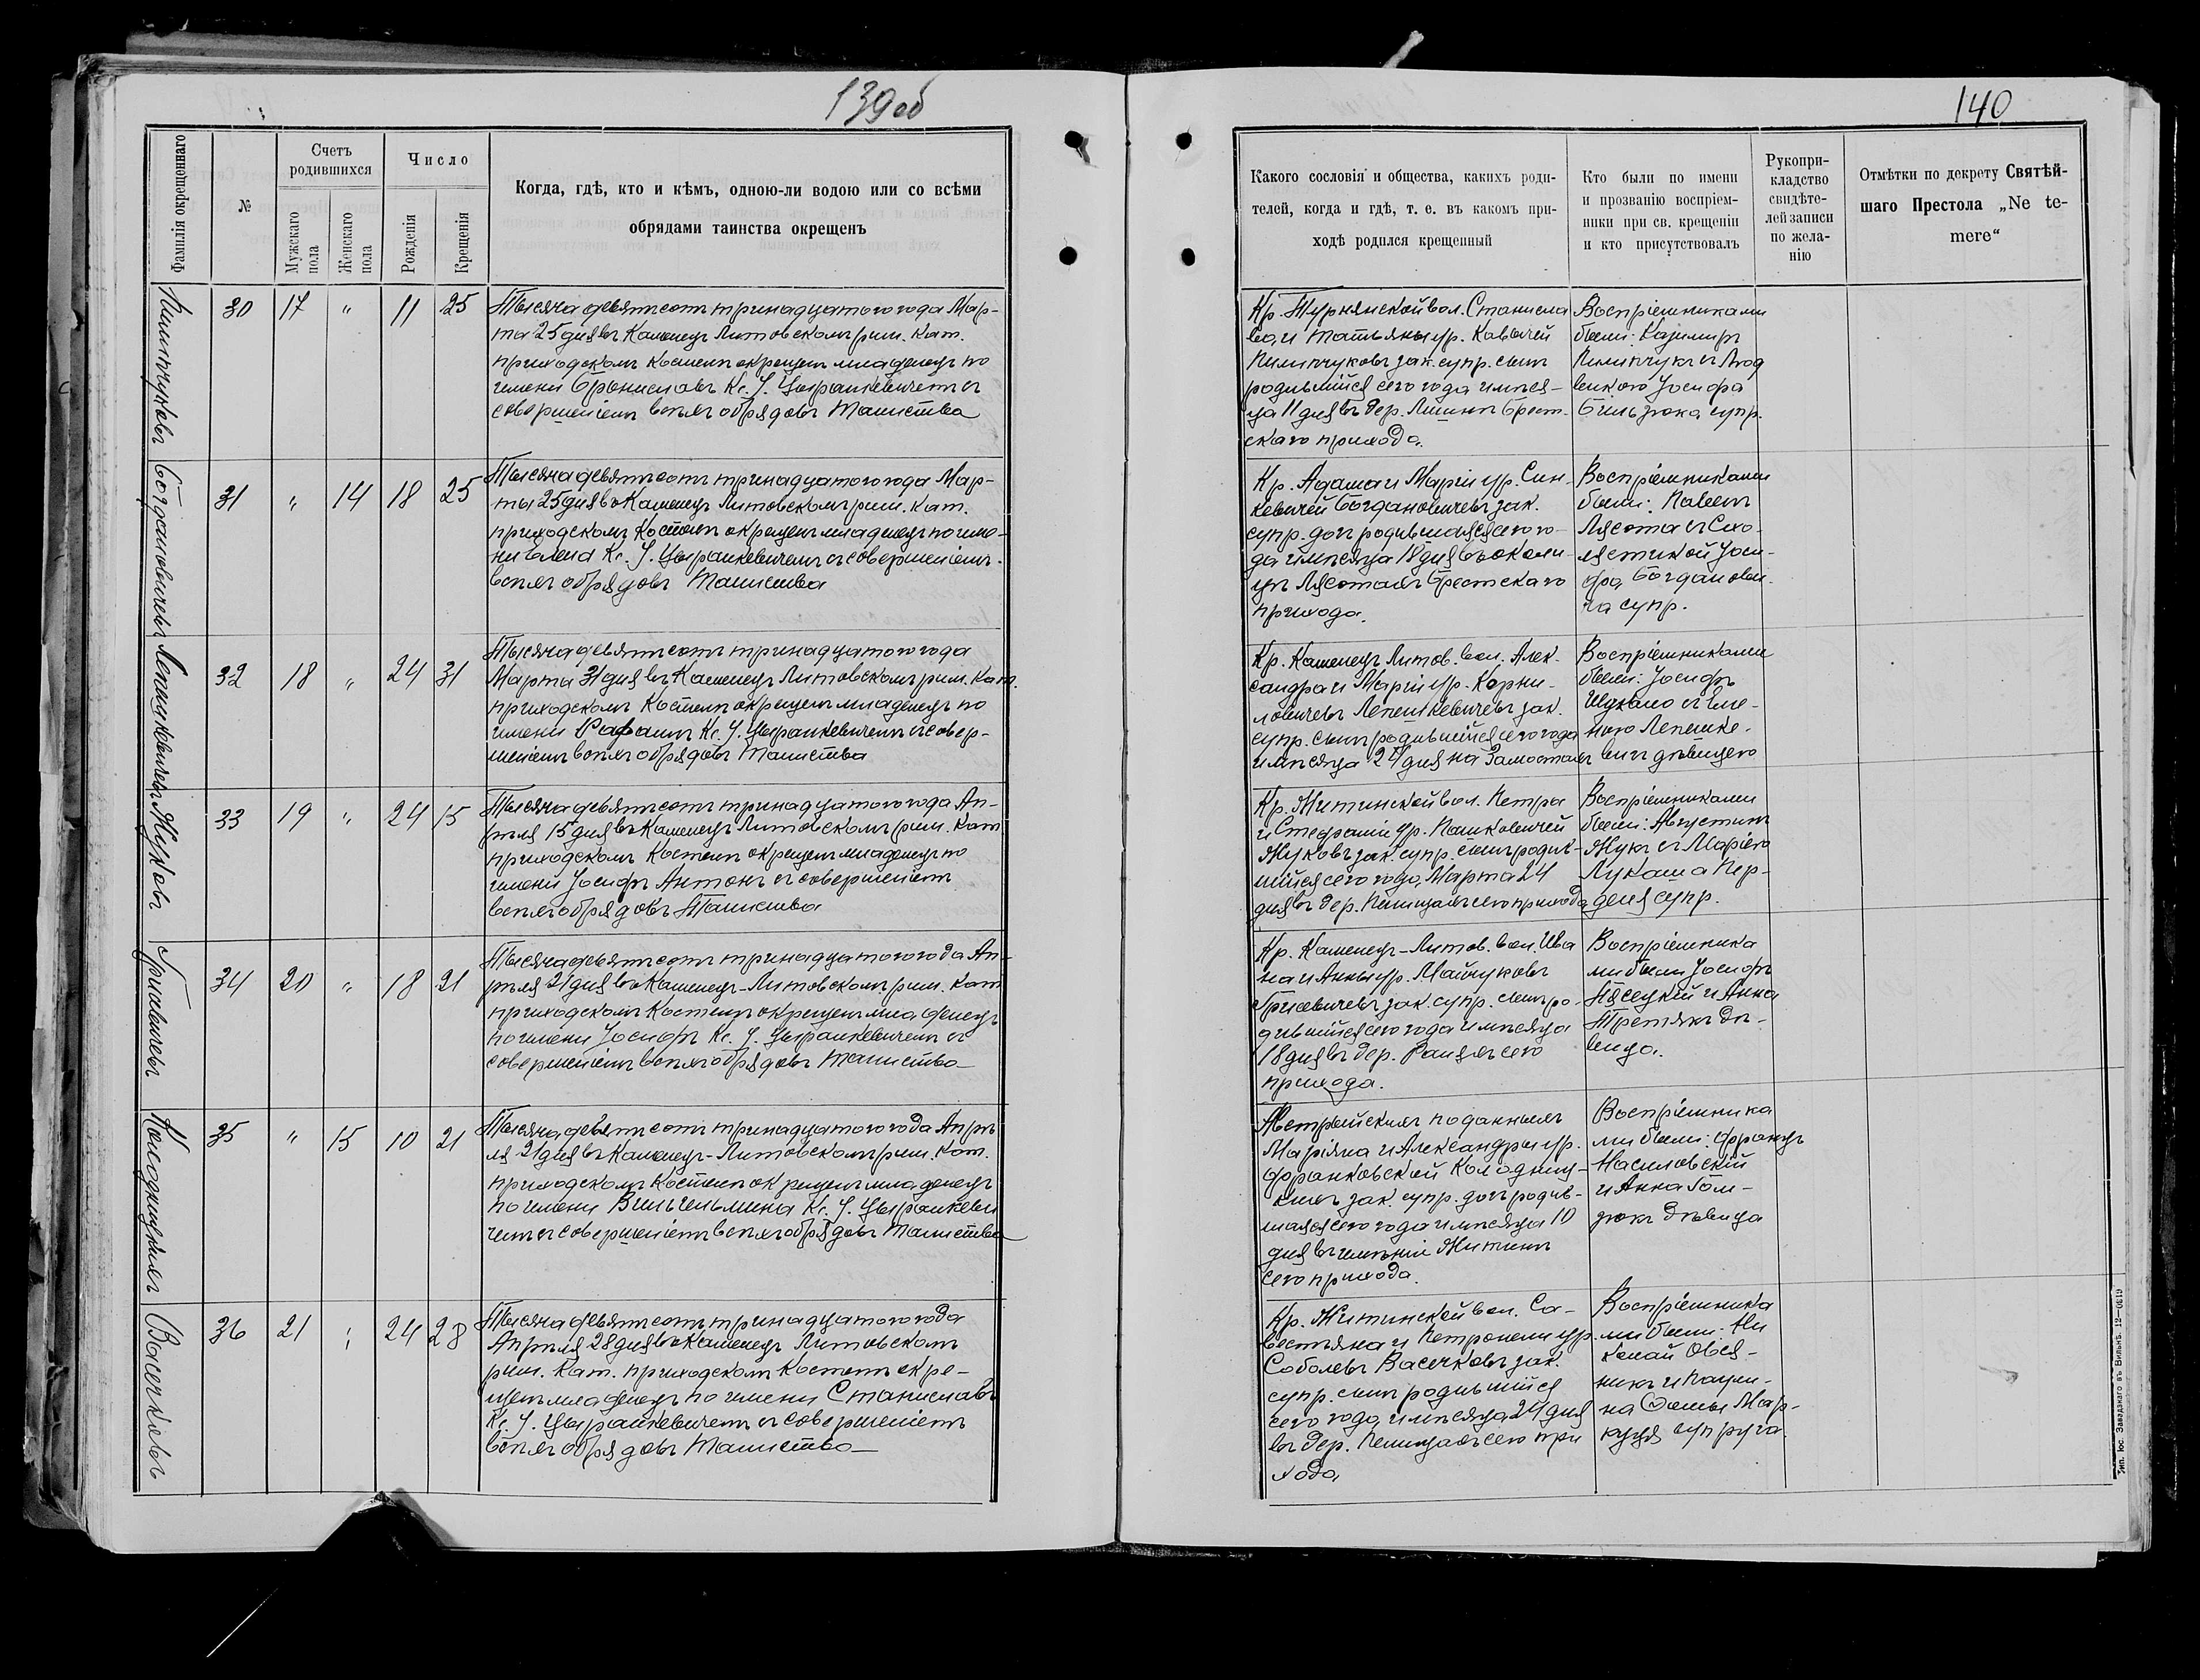 139об
Фамилія окрещеннаго
№
Счетъ родившихся
Мужскаго пола
Женскаго пола
Число
Рожденія
Крещенія
Когда, гдѣ, кто и кѣмъ, одною-ли водою или со всѣми
обрядами таинства окрещенъ
Пилипчуковъ
30 17 " 11 25
Тысяча девятьсотъ тринадцатого года Мар-
та 25 дня въ Каменецъ Литовскомъ рим. кат.
приходскомъ Костелѣ окрещенъ младенецъ по
имени Брониславъ Кс. І. Цыранкевичемъ съ
совершеніемъ всѣхъ обрядовъ Таинства
Богдановичевъ
31 " 14 18 25
Тысяча девятьсотъ тринадцатого года Мар-
та 25 дня въ Каменецъ Литовскомъ рим. кат.
приходскомъ Костелѣ окрещенъ младенецъ по име-
ни Кс. І. Цыранкевичемъ съ совершеніемъ
всѣхъ обрядовъ Таинства
Лепешкевичевъ
32 18 " 24 31
Тысяча девятьсотъ тринадцатого года
Марта 31 дня въ Каменецъ Литовскомъ рим. Кат.
приходскомъ Костелѣ окрещенъ младенецъ по
имени Рафаилъ Кс. І. Цыранкевичемъ съ совер-
шеніемъ всѣхъ обрядовъ Таинства
Жуковъ
33 19 " 24 15
Тысяча девятьсотъ тринадцатого года Ап-
рѣля 15 дня въ Каменецъ Литовскомъ рим. Кат
приходскомъ Костелѣ окрещенъ младенецъ по
имени Іосифъ Антонъ съ совершеніемъ
всѣхъ обрядовъ Таинства
Грисевичевъ
34 20 " 18 21
Тысяча девятьсотъ тринадцатого года Ап-
рѣля 21 дня въ Каменецъ-Литовскомъ рим. Кат
приходскомъ Костелѣ окрещенъ младенецъ
по имени Іосифъ Кс. І. Цыранкевичемъ съ
совершеніемъ всѣхъ обрядовъ Таинства
Колодницкихъ
35 " 15 10 21
Тысяча девятьсотъ тринадцатого года Апрѣ
ля 21 дня въ Каменецъ-Литовскомъ рим. Кат.
приходскомъ Костелѣ окрещенъ младенецъ
по имени Вильгельмина Кс. І. Цыранкеви
чемъ съ совершеніемъ всѣхъ обрядовъ Таинства
Васечковъ
36 21 " 24 28
Тысяча девятьсотъ тринадцатого года
Апрѣля 28 дня въ Каменецъ Литовскомъ
рим. Кат. приходскомъ Костелѣ окре-
щенъ младенецъ по имени Станиславъ
Кс. І. Цыранкевичемъ съ совершеніемъ
всѣхъ обрядовъ Таинства
140
Какого сословія и общества, какихъ роди-
телей, когда и гдѣ, т. е. въ какомъ при-
ходѣ родился крещенный
Кто были по имени
и прозванію воспріем-
ники при св. крещеніи
и кто присутствовалъ
Рукопри-
кладство
свидѣте-
лей записи
по жела-
нію
Отмѣтки по декрету Святѣй-
шаго Престола „Ne te-
mere“
Кр. Турнянской вол. Станисла
ва и Татьяны ур. Кавычей
Пилипчуковъ зак. супр. сынъ
родившійся сего года и мѣся-
ца 11 дня въ дер. Брест-
скаго прихода.
Воспріемниками
были: Казимиръ
Пилипчукъ съ Люд
викою Іосифа
супр.
Кр. Адама и Маріи ур. Син
кевичей Богдановичевъ зак.
супр. дочь родившаяся сего го-
да и мѣсяца 18 дня въ околи-
цѣ Лясотахъ Брестскаго
прихода.
Воспріемниками
были: Павелъ
Лясота съ Схо-
ластикой Іоси-
фа Богданови-
ча супр.
Кр. Каменецъ Литов. вол. Алек-
сандра и Маріи ур. Корни-
ловичевъ Лепешкевичевъ зак.
супр. сынъ родившійся сего года
и мѣсяца 24 дня на Замостахъ
Воспріемниками
были: Іосифъ
съ
Лепешке-
вичъ дѣвицею
Кр. Житинской вол. Петра
и Стефаніи ур. Пашкевичей
Жуковъ зак. супр. сынъ родив-
шійся сего года Марта 24
дня въ дер. Пелищахъ сего прихода
Воспріемниками
были: Августинъ
Жукъ съ Маріею
Лукаша Пер-
деля супр.
Кр. Каменецъ-Литов. вол. Ива
на и Анны ур. Майчуковъ
Грисевичевъ зак. супр. сынъ ро-
дившійся сего года и мѣсяца
18 дня въ дер. сего
прихода.
Воспріемника
ми были Іосифъ
и Анна
Третякъ дѣ-
вица.
Австрыйскихъ поданныхъ
Маріяна и Александры ур.
Франковской Колодниц-
кихъ зак. супр. дочь родив-
шаяся сего года и мѣсяца 10
дня въ имѣніи Житинъ
сего прихода.
Воспріемника
ми были: Францъ
Насиловскій
и Анна Гом-
зюкъ дѣвица
Кр. Житинской вол. Са-
вестьяна и Петронели ур.
Соболевъ Васечковъ зак.
супр. сынъ родившійся
сего года и мѣсяца 24 дня
въ дер. Пелищахъ сего при
хода
Воспріемника
ми были: Ни
колай Овся-
никъ и Паули-
на Фомы Мар-
куця супруга.
Тип. Юс. Завадзкаго въ Вильнѣ. 12—0619